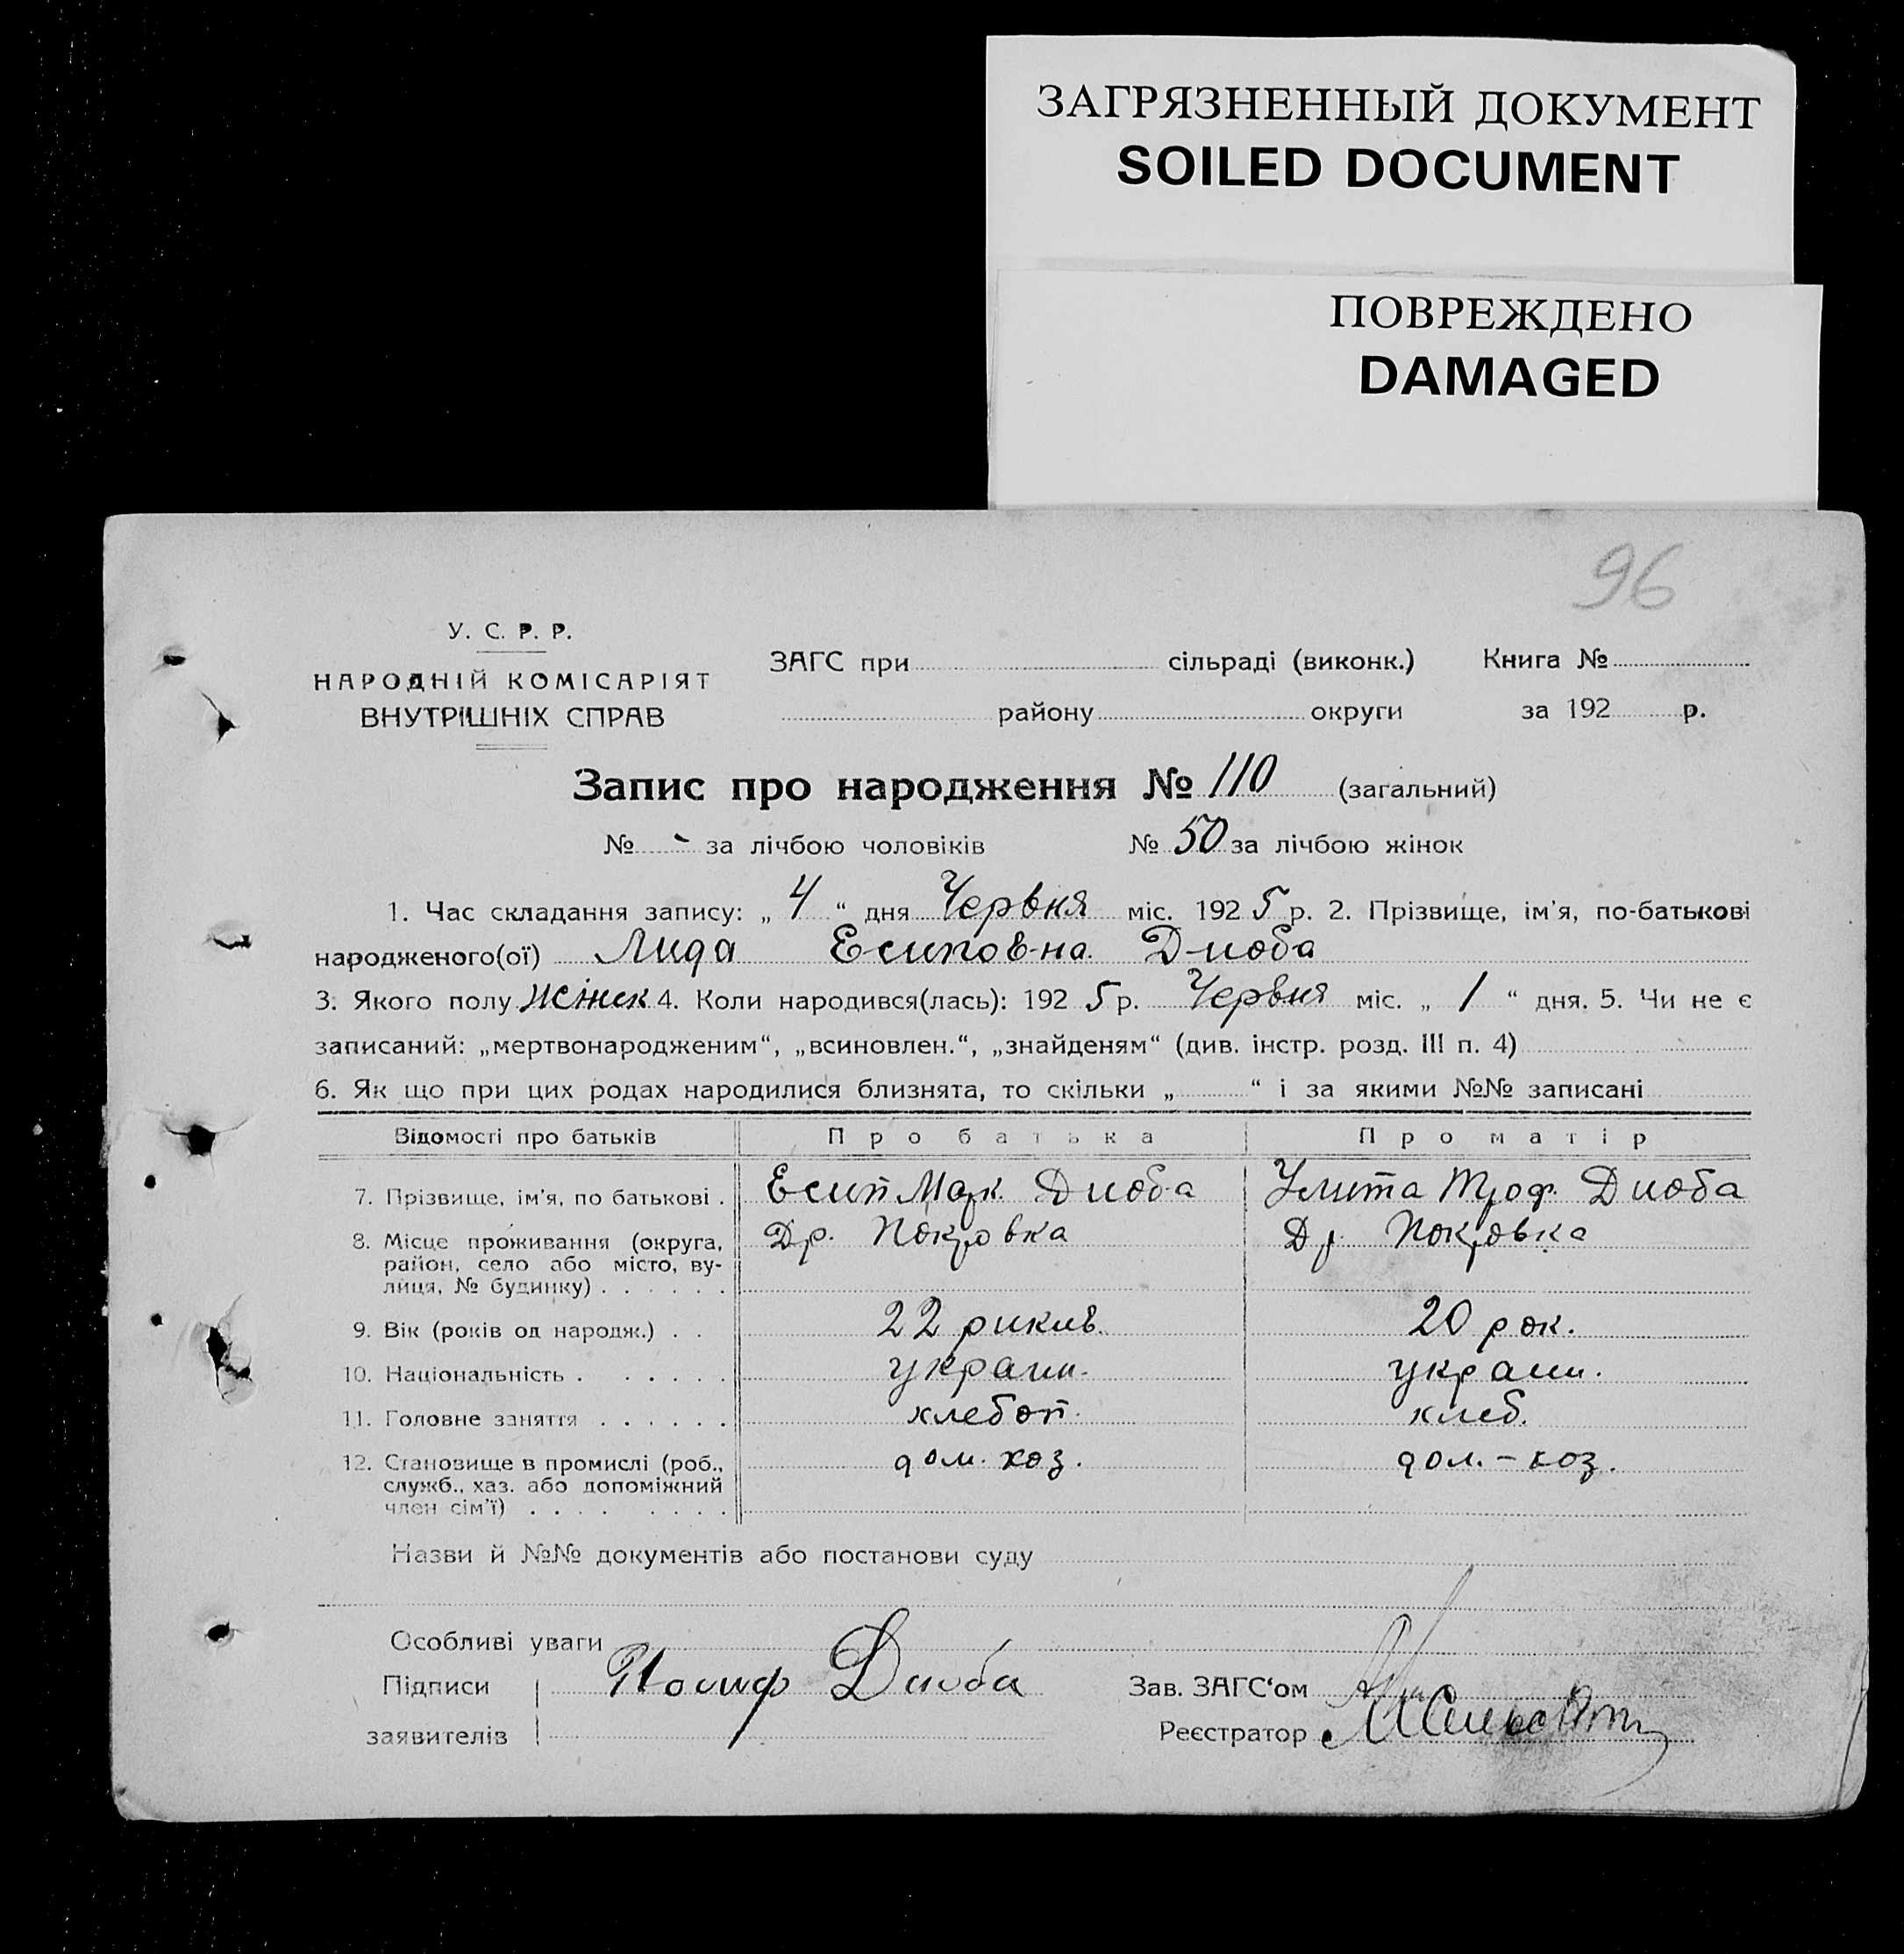 ЗАГРЯЗНЕННЫЙ ДОКУМЕНТ
SOILED DOCUMENT
ПОВРЕЖДЕНО
DAMAGED
96
У. С. Р. Р.
НАРОДНІЙ КОМІСАРІЯТ
ВНУТРІШНІХ СПРАВ
ЗАГС при сільраді (виконк.) Книга №
району округи за 192 р.
Запис про народження № 110 (загальний)
№ - за лічбою чоловіків № 50 за лічбою жінок
1. Час складання запису: „ 4 “ дня Червня міс. 1925 р. 2. Прізвище, ім'я, по-батькові
народженого(ої) Лида Есиповна Дзюба
3. Якого полу жінск 4. Коли народився(лась): 1925 р. Червня міс. „ 1 “ дня. 5. Чи не є
записаний: „мертвонародженим“, „всиновлен.“, „знайденям“ (див. інстр. розд. III п. 4)
6. Як що при цих родах народилися близнята, то скільки „ “ і за якими №№ записані
Відомості про батьків Про батька Про матір
7. Прізвище, ім'я, по батькові . Есип Марк. Дзюба Улита Троф. Дзюба
8. Місце проживання (округа, Др. Покровка Др. Покровка
район, село або місто, ву-
лиця, № будинку) . . . . . .
9. Вік (років од народж.) . . 22 рикив. 20 рок.
10. Національність . . . . . . украин. украин.
11. Головне заняття . . . . . . хлебоп. хлеб.
12. Становище в промислі (роб., дом. хоз. дом. - хоз.
служб., хаз. або допоміжний
член сім'ї) . . . . . . . .
Назви й №№ документів або постанови суду
Особливі уваги
Підписи Иосиф Дзюба Зав. ЗАГС'ом
заявителів Реєстратор